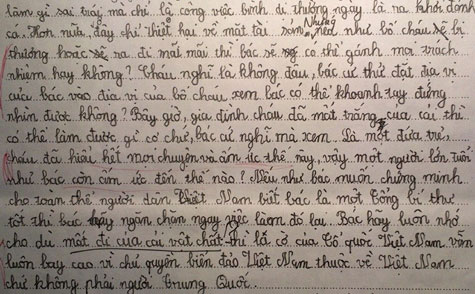 làm gì sai trái mà chỉ là công việc bình dị thường ngày là ra khơi đánh
cá. Hơn nữa, đây chỉ thiệt hại về mặt tài sản, nhưng nếu như bố cháu bị
thương hoặc ra đi mãi mãi thì bác có thể gánh mọi trách
nhiệm hay không? Cháu nghĩ là không đâu, bác cứ thử đặt địa vị
của bác vào địa vị của bố cháu xem bác có thể khoanh tay đứng
nhìn được không? Bây giờ, gia đình cháu đã mất trắng cả cái thì
có thể làm được gì cơ chứ, bác cứ nghĩ mà xem. Là một đứa trẻ,
cháu đã hiểu hết mọi chuyện và ấm ức thế này, vậy một người lớn tuổi
như bác còn ấm ức đến thế nào? Nếu như bác muốn chứng minh
cho toàn thể người dân Việt Nam biết bác là một Tổng bí thư
tốt thì bác hãy ngăn chặn ngay việc làm đó lại. Bác hãy luôn nhớ
cho dù mất đi của cải vật chất thì lá cờ của Tổ quốc Việt Nam vẫn
luôn bay cao vì chủ quyền biển đảo Việt Nam thuộc về Việt Nam
chứ không phải người Trung Quốc.